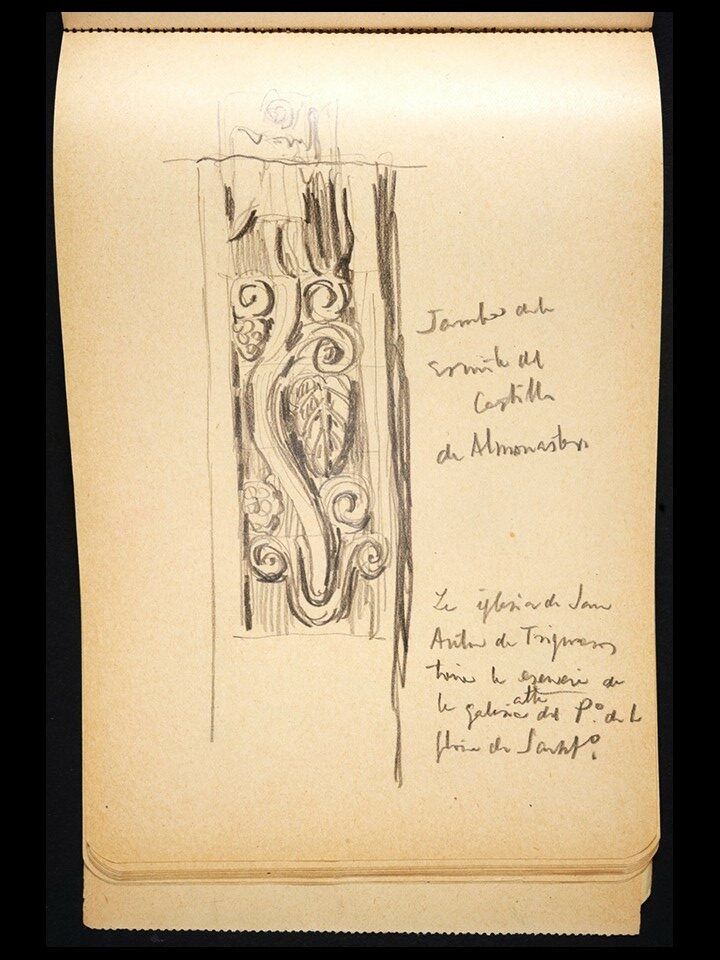 Jamba de la
ermita del
Castillo
de Almonaster
La iglesia de San
Antón de Trigueros
tiene la
la galería alta del Pº. de la
de